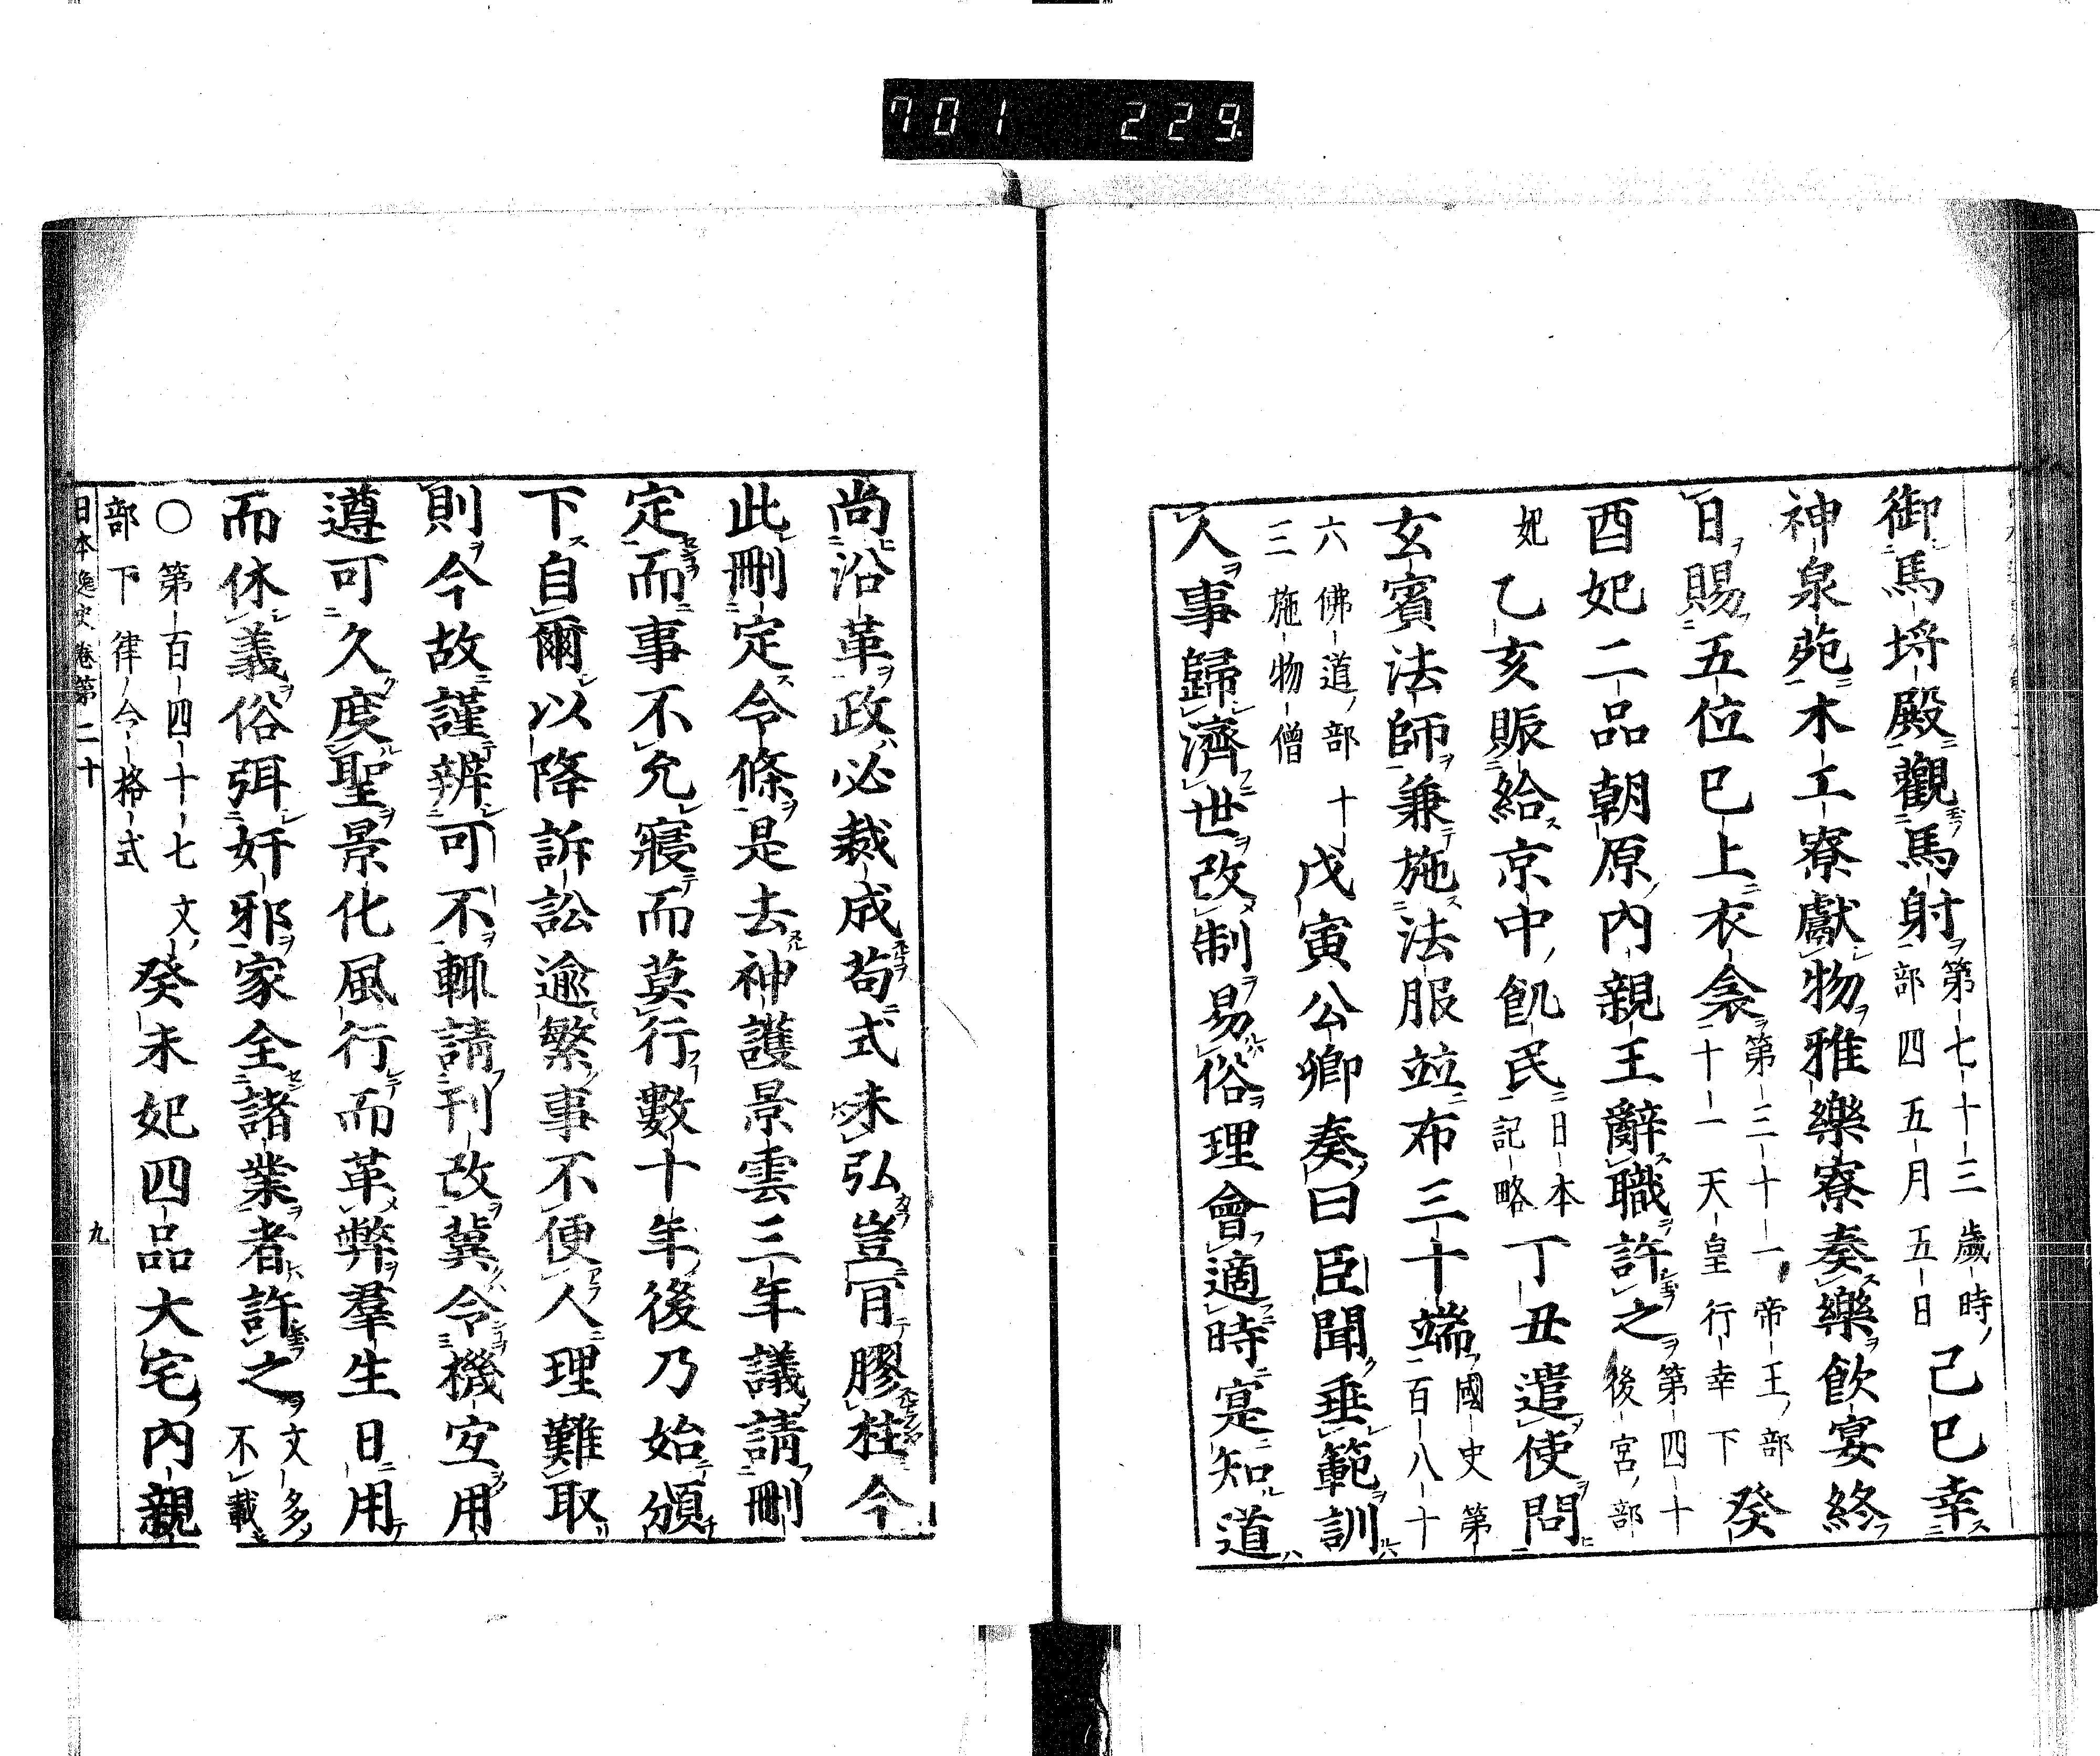 701 229
御馬埒殿觀馬射第七十三歲時部四五月五日己巳幸
神泉苑木工寮獻物雅樂寮奏樂飲宴終
日賜五位已上衣衾第三十一帝王部十一天皇行幸下癸
酉妃二品朝原内親王辭職許之第四十後宮部
妃乙亥賑給京中飢民日本記略丁丑遣使問
玄賓法師兼施法服竝布三十端國史第百八十
六佛道部十三施物僧戊寅公卿奏曰臣聞垂範訓
人事歸濟世改制易俗理會適時寔知道
尚沿革政必裁成苟式未弘豈肎膠柱今
此刪定令條是去神護景雲三年議請刪
定而事不允寢而莫行數十年後乃始頒
下自爾以降訴訟逾繁事不便人理難取
則今故謹辨可不輙請刊改冀令機宜用
遵可久度聖景化風行而革弊羣生日用
而休義俗弭奸邪家全諸業者許之文多不載
〇第百四十七文部下律令格式癸未妃四品大宅内親
日本逸史卷第二十
九